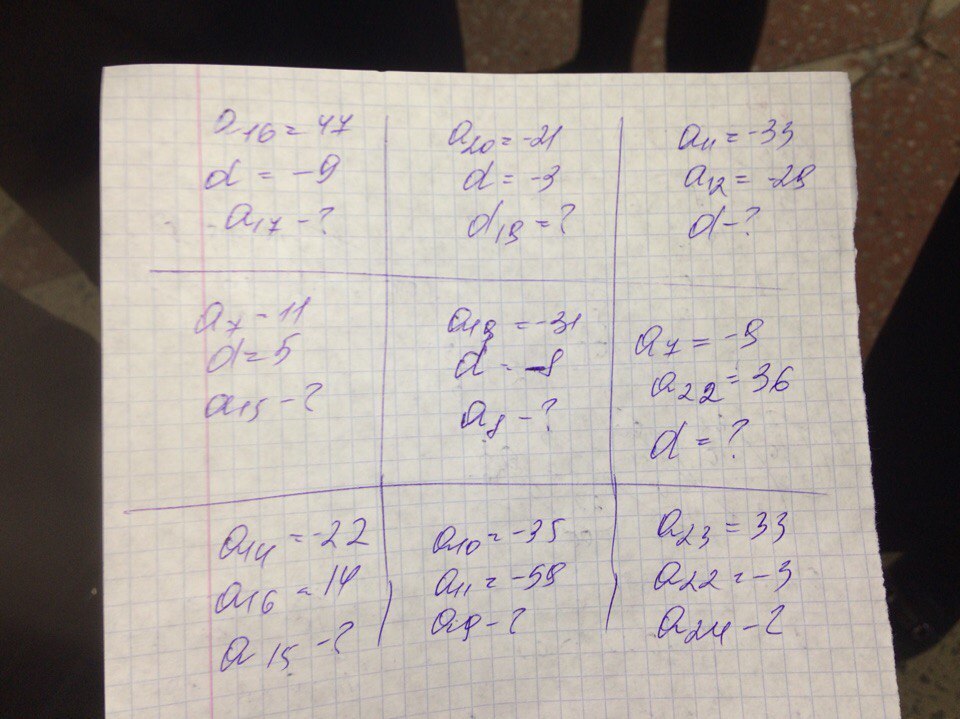 a₁₆ = 47
d = -9
a₁₇ - ?
a₂₀ = -21
d = -3
d₁₉ = ?
a₁₁ = -33
a₁₂ = -29
d - ?
a₇ - 11
d = 5
a₁₅ - ?
a₁₉ = -31
d = -8
a₈ - ?
a₇ = -9
a₂₂ = 36
d = ?
a₁₄ = -22
a₁₆ = 14
a₁₅ - ?
a₁₀ = -35
a₁₁ = -59
a₉ - ?
a₂₃ = 33
a₂₂ = -3
a₂₄ - ?